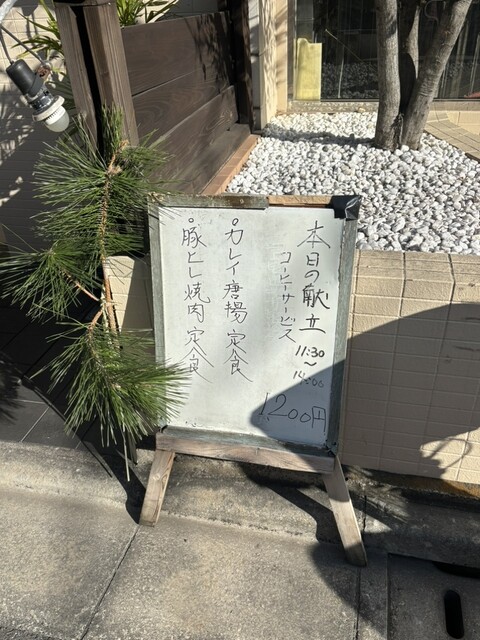 本日の献立
コーヒーサービス
11:30
～
14:00
1200円
○カレイ唐揚定食
○豚ヒレ焼肉定食